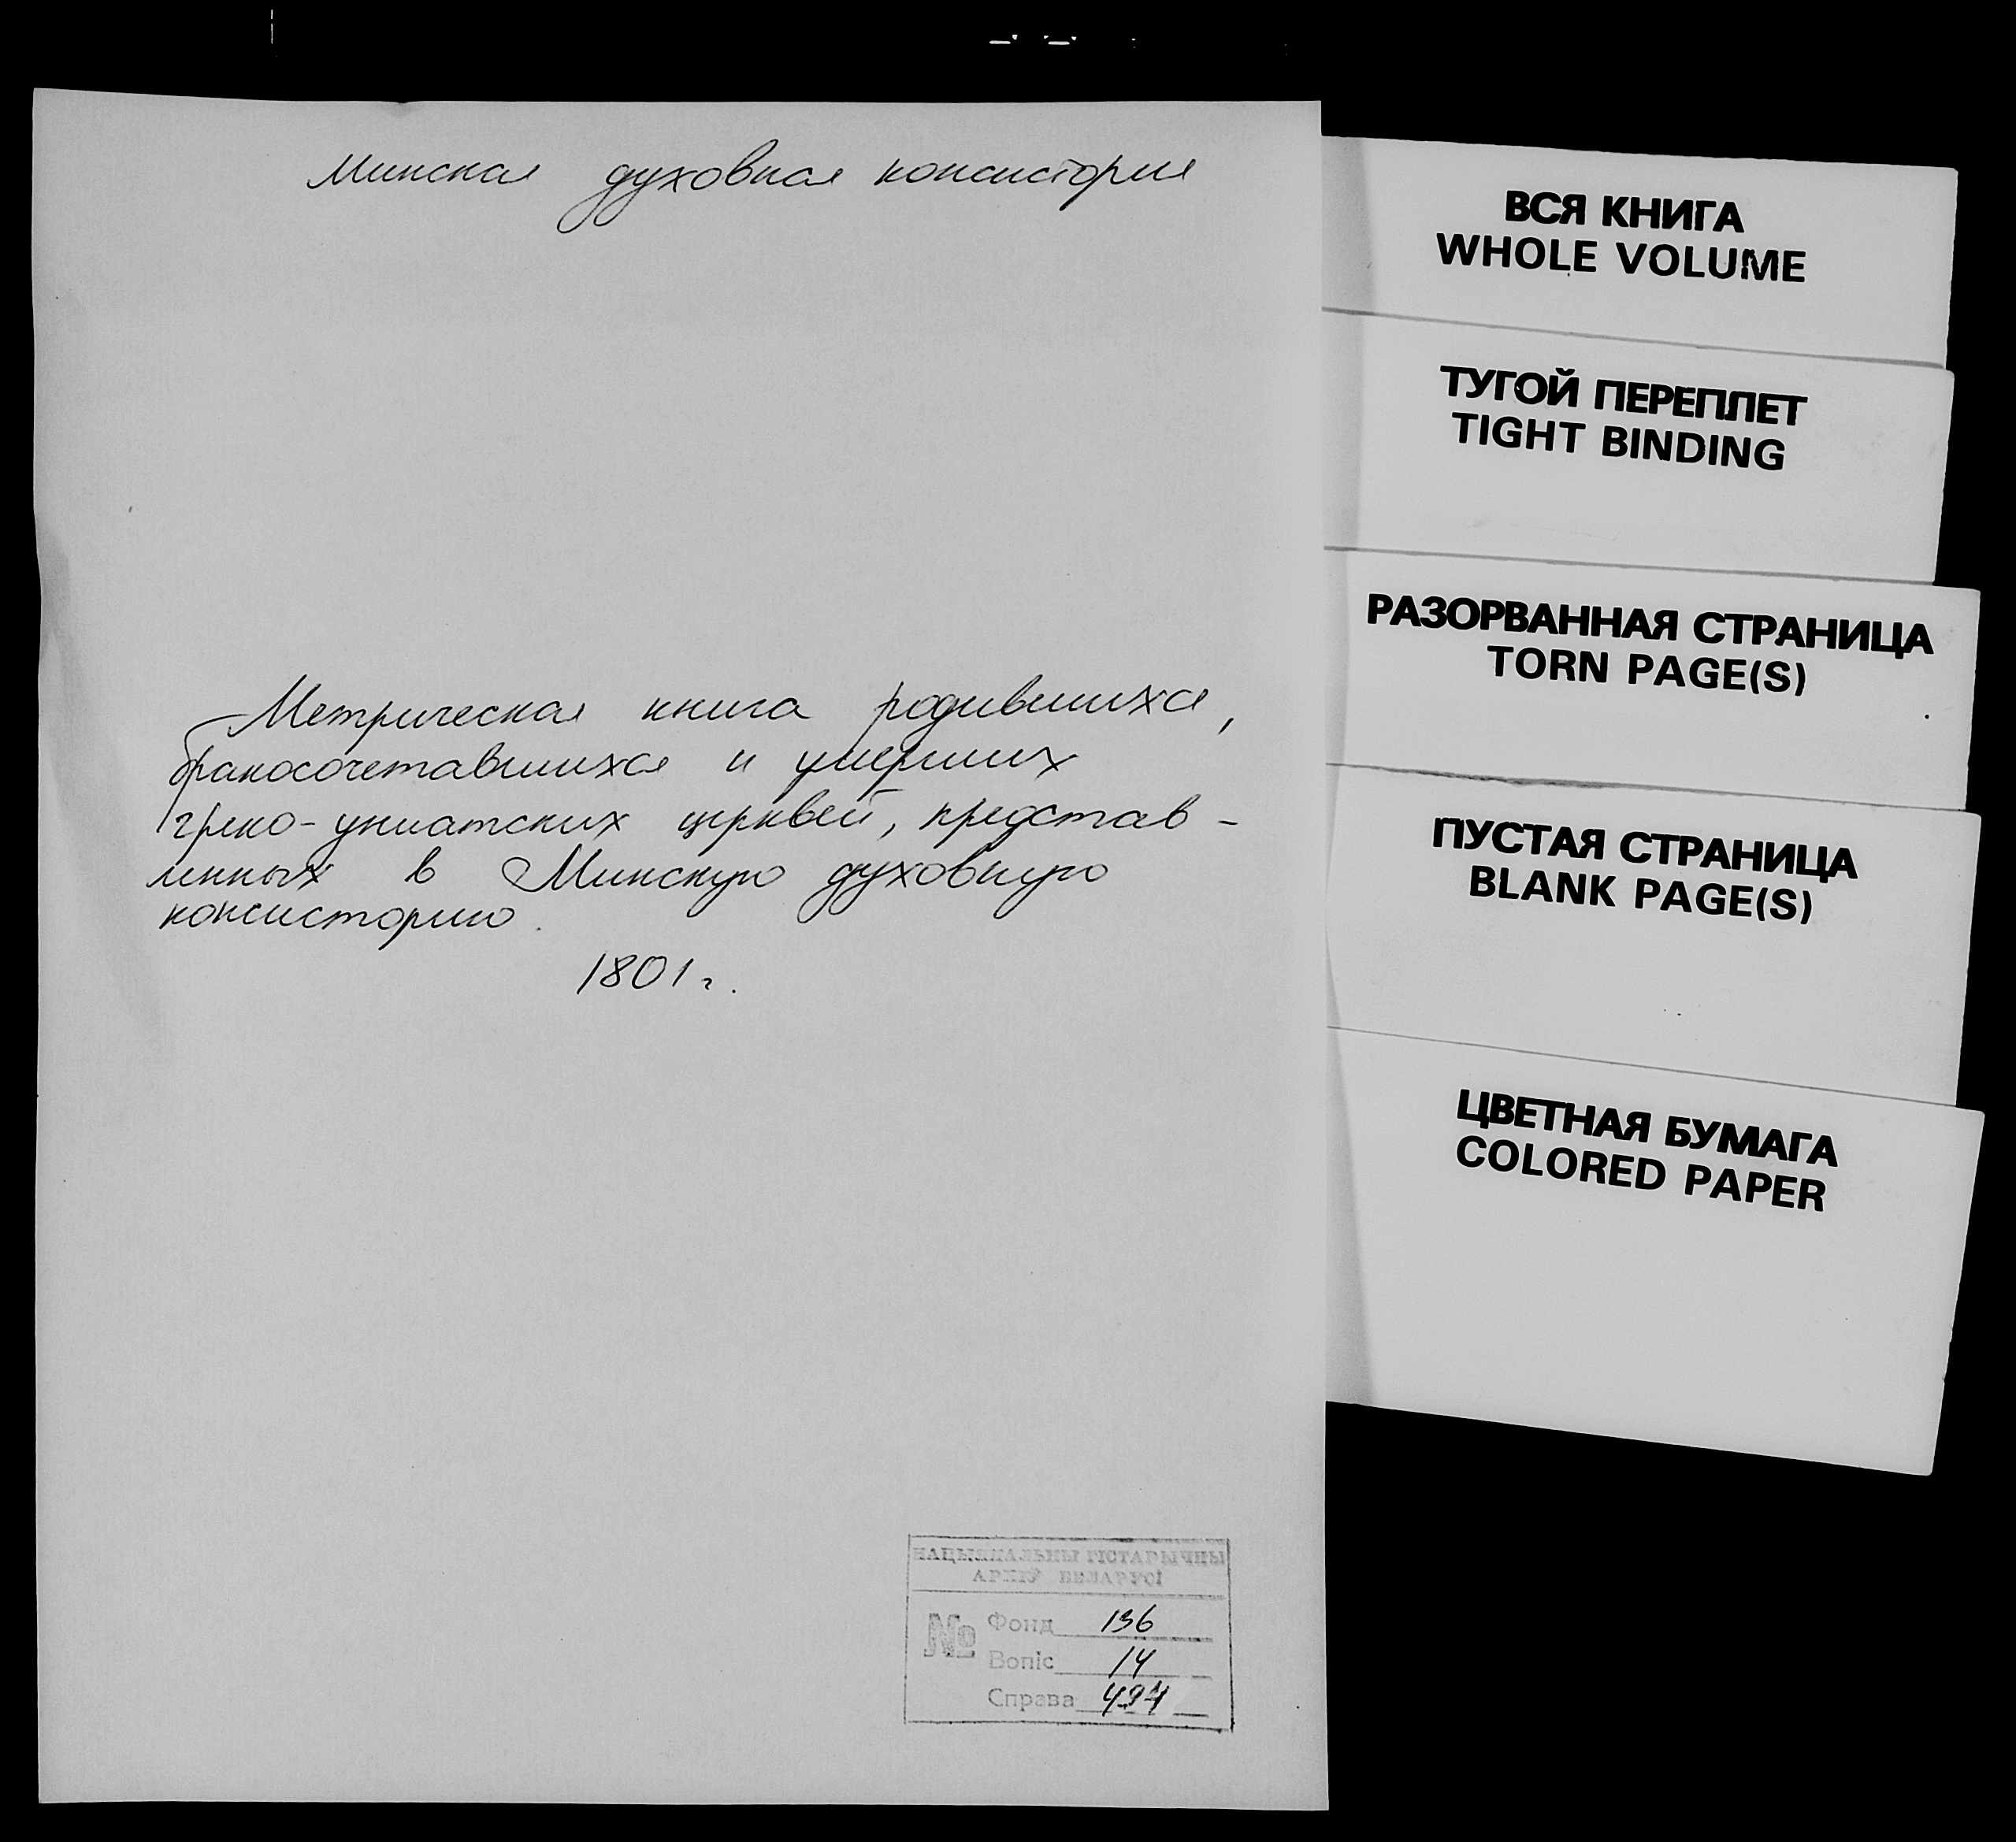 Минская духовная консистория
Метрическая книга родившихся,
бракосочетавшихся и умерших
греко-униатских церквей, представ-
ленных в Минскую духовную
консисторию.
1801 г.
НАЦЫЯНАЛЬНЫ ГІСТАРЫЧНЫ
АРХІЎ БЕЛАРУСІ
№
Фонд 136
Вопіс 14
Справа
ВСЯ КНИГА
WHOLE VOLUME
ТУГОЙ ПЕРЕПЛЕТ
TIGHT BINDING
РАЗОРВАННАЯ СТРАНИЦА
TORN PAGE(S)
ПУСТАЯ СТРАНИЦА
BLANK PAGE(S)
ЦВЕТНАЯ БУМАГА
COLORED PAPER